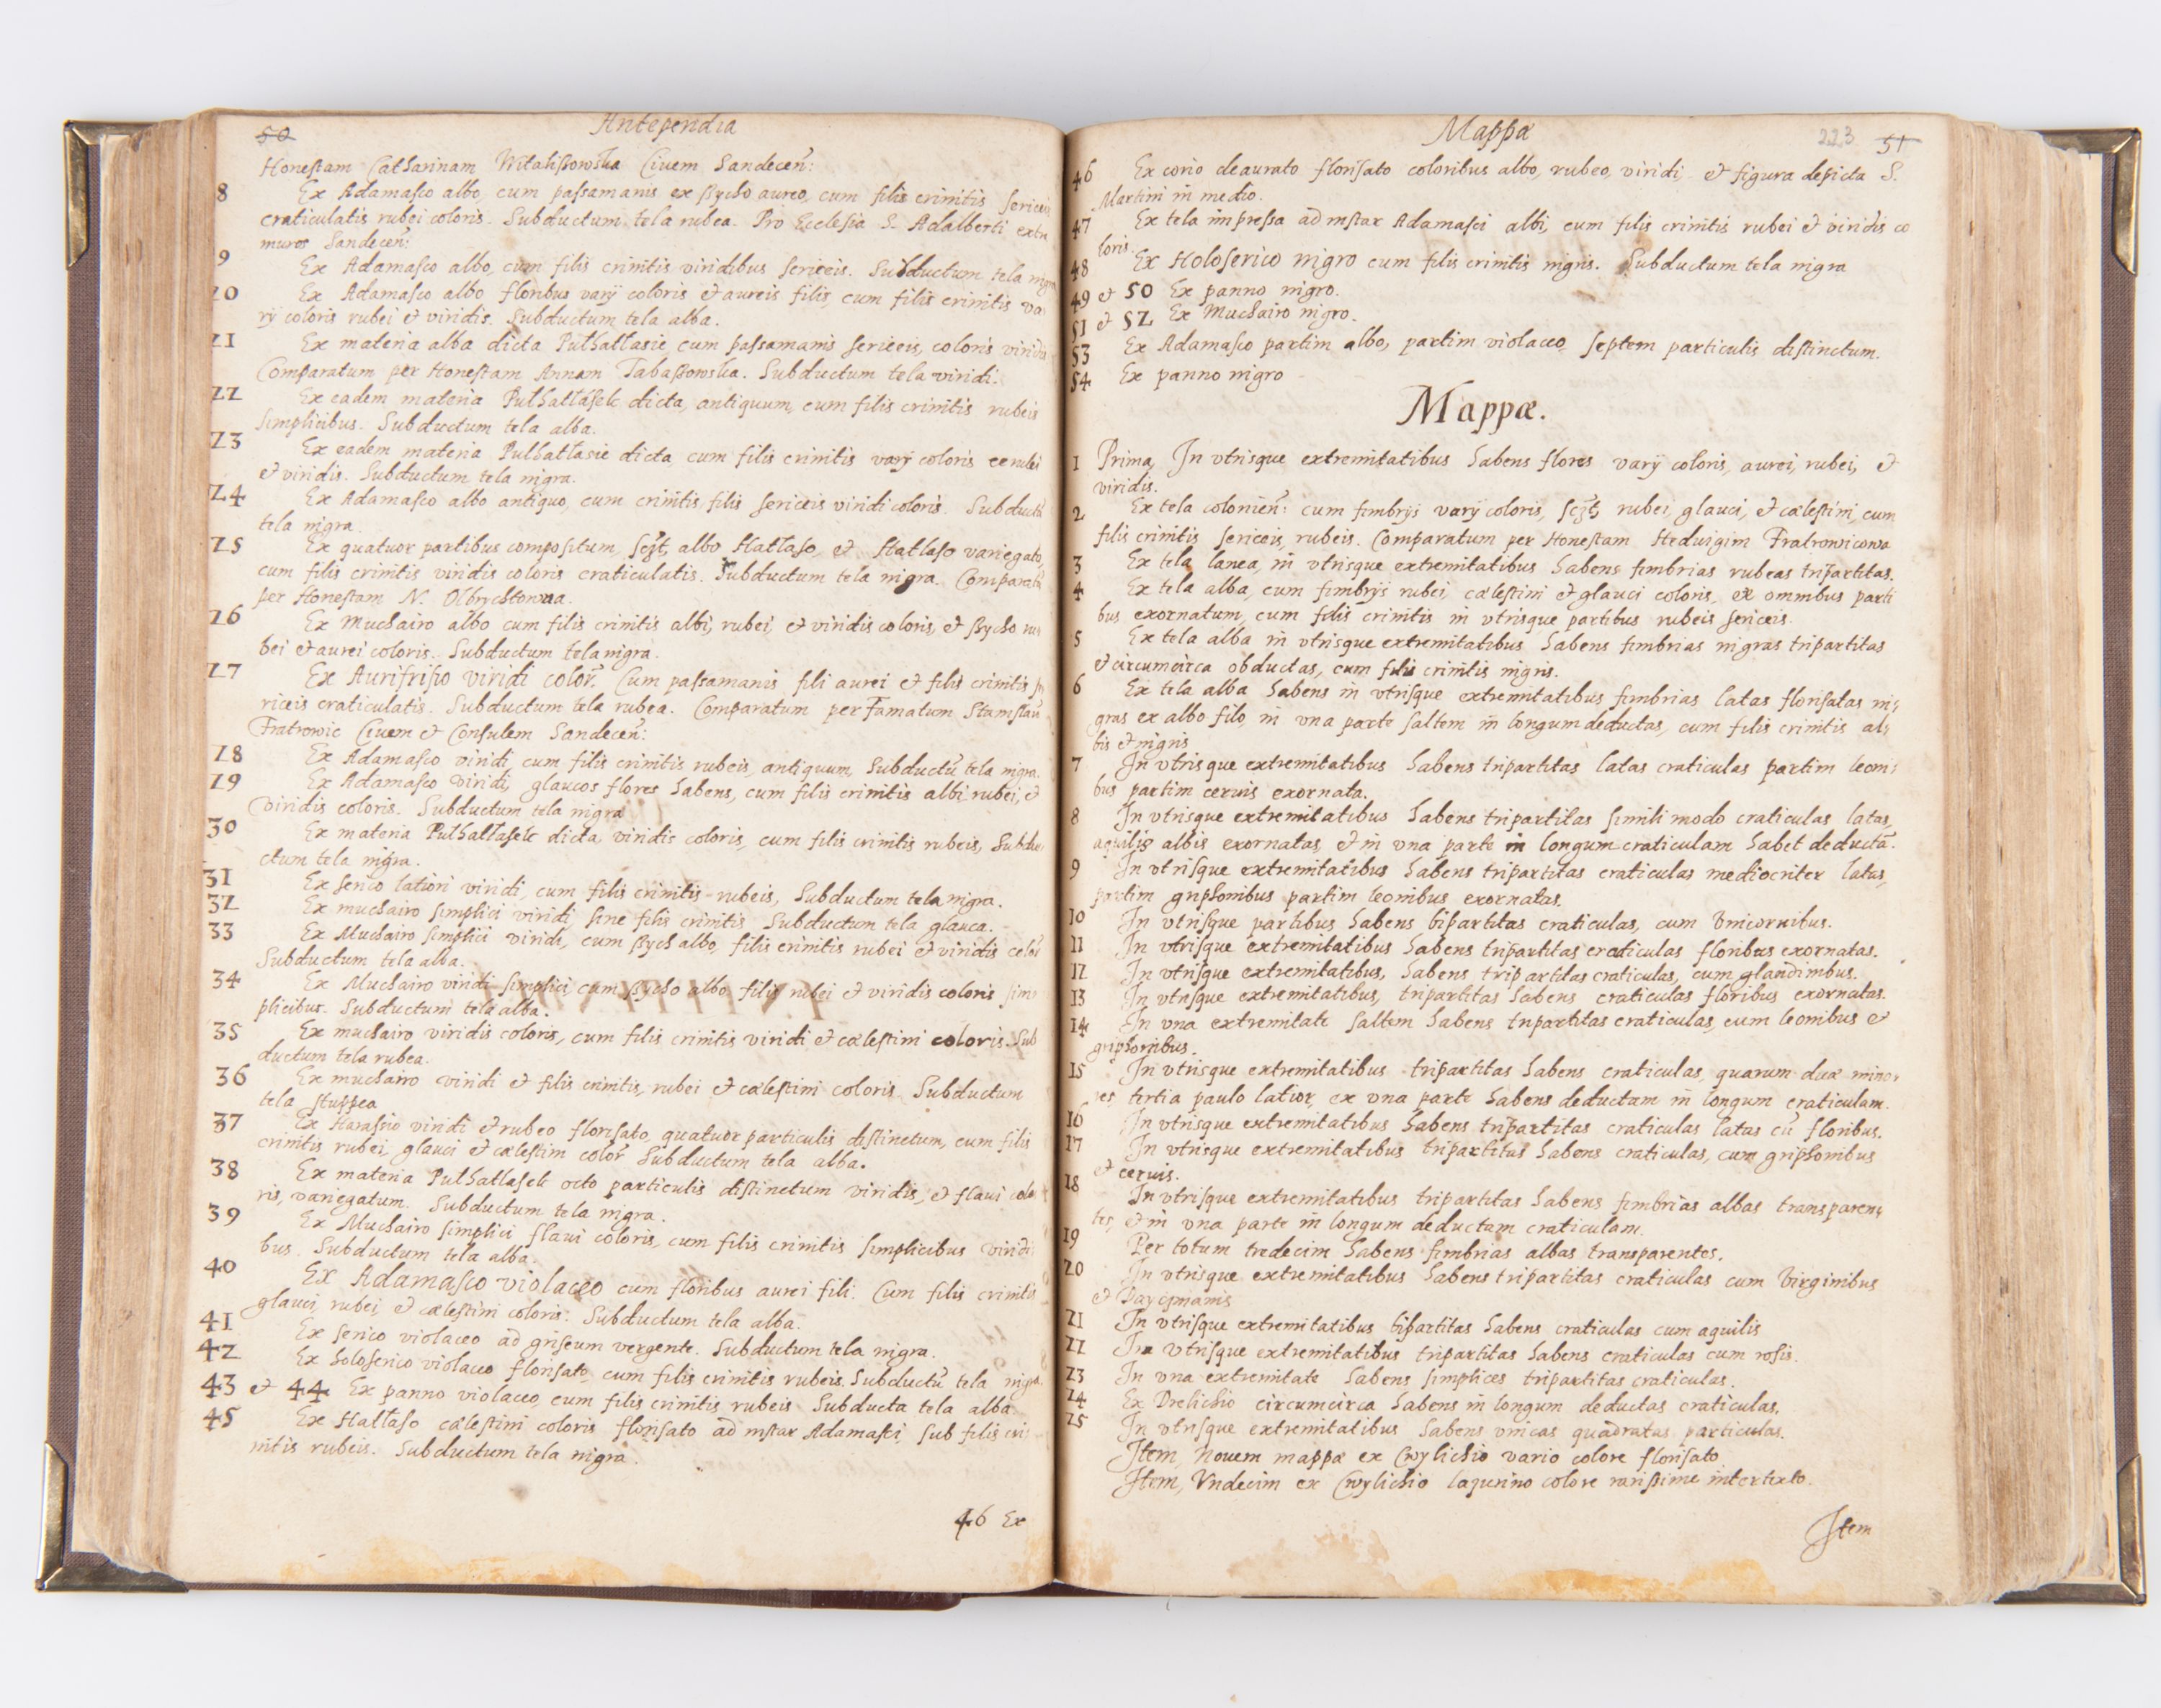 50
Antependia
Honestam Catharinam Witaliszowska Civem Sandeceñ:
8 Ex Adamasco albo, cum passamanis ex szycho aureo, cum filis crinitis sericeis
craticulatis rubei coloris. Subductum tela rubea. Pro Ecclesia S. Adalberti extra
muros Sandeceñ:
9 Ex Adamasco albo, cum filis crinitis viridibus sericeis. Subductum tela nigra
20 Ex Adamasco albo floribus varij coloris et aureis filis cum filis crinitis va
rij coloris rubei et viridis. Subductum tela alba.
21 Ex materia alba dicta Pulhatlasie cum passamanis sericeis, coloris viridis
Comparatum per Honestam Annam Tabaszowska. Subductum tela viridi.
22 Ex eadem materia Pulhatlasek dicta, antiquum, cum filis crinitis rubeis
simplicibus. Subductum tela alba.
23 Ex eadem materia Pulhatlasie dicta cum filis crinitis varij coloris rubei
et viridis. Subductum tela nigra.
24 Ex Adamasco albo antiquo, cum crinitis filis sericeis viridi coloris. Subductū
tela nigra.
25 Ex quatuor partibus compositum, sczt, albo Hatlaso, et Hatlaso variegato,
cum filis crinitis viridis coloris craticulatis. Subductum tela nigra. Comparatū
per Honestam N. Olbrychtowna.
26 Ex Muchairo albo cum filis crinitis albi, rubei, et viridis coloris, et szycho ru
bei et aurei coloris. Subductum tela nigra.
27 Ex Aurifrisio viridi color. Cum passamanis fili aurei et filis crinitis se
riceis craticulatis. Subductum tela rubea. Comparatum per Famatum Stanislaū
Fratrowic Civem et Consulem Sandeceñ:
28 Ex Adamasco viridi, cum filis crinitis rubeis, antiquum, Subductū tela nigra.
29 Ex Adamasco viridi, glaucos flores habens, cum filis crinitis albi rubei, et
viridis coloris. Subductum tela nigra
30 Ex materia Pulhatlasek dicta, viridis coloris, cum filis crinitis rubeis, Subdu
ctum tela nigra.
31 Ex serico latiori viridi, cum filis crinitis rubeis, Subductum tela nigra.
32 Ex muchairo simplici viridi, sine filis crinitis Subductum tela glauca.
33 Ex Muchairo simplici viridi, cum szych albo, filis crinitis rubei et viridis color
Subductum tela alba.
34 Ex Muchairo viridi simplici, cum szycho albo, filis rubei et viridis coloris sim
plicibus. Subductum tela alba.
35 Ex muchairo viridis coloris, cum filis crinitis viridi et cælestini coloris. Sub
ductum tela rubea.
36 Ex muchairo viridi et filis crinitis, rubei et cælestini coloris. Subductum
tela stuppea
37 Ex Harassio viridi et rubeo florisato, quatuor particulis distinctum, cum filis
crinitis rubei, glauci et cælestini color Subductum tela alba.
38 Ex materia Pulhatlasek octo particulis distinctum viridis, et flaui colo
ris, variegatum. Subductum tela nigra.
39 Ex Muchairo simplici flaui coloris, cum filis crinitis simplicibus viridi
bus. Subductum tela alba.
40 Ex Adamasco violaceo cum floribus aurei fili. Cum filis crinitis
glauci, rubei, et cælestini coloris. Subductum tela alba.
41 Ex serico violaceo ad griseum vergente. Subductum tela nigra.
42 Ex holoserico violaceo florisato, cum filis crinitis rubeis. Subductū tela nigra
43 et 44 Ex panno violaceo, cum filis crinitis rubeis Subducta tela alba.
45 Ex Hatlaso cælestini coloris florisato ad instar Adamasci, sub filis cri
nitis rubeis. Subductum tela nigra.
46 Ex
Mappæ
223
51
46 Ex corio deaurato florisato coloribus albo, rubeo, viridi, et figura depicta S.
Martini in medio.
47 Ex tela impressa ad instar Adamasci albi, cum filis crinitis rubei et viridis co
loris.
48 Ex Holoserico nigro cum filis crinitis nigris. Subductum tela nigra
49 et 50 Ex panno nigro.
51 et 52 Ex Muchairo nigro.
53 Ex Adamasco partim albo, partim violaceo, septem particulis distinctum.
54 Ex panno nigro
Mappæ.
1 Prima, In vtrisque extremitatibus habens flores varij coloris, aurei, rubei, et
viridis.
2 Ex tela colonieñ: cum fimbrijs varij coloris, sczt, rubei, glauci, et cælestini, cum
filis crinitis sericeis, rubeis. Comparatum per Honestam Hedvigim Fratrowicowa
3 Ex tela lanea, in vtrisque extremitatibus habens fimbrias rubeas tripartitas.
4 Ex tela alba, cum fimbrijs rubei, cælestini et glauci coloris, ex omnibus parti
bus exornatum, cum filis crinitis in vtrisque partibus rubeis sericeis.
5 Ex tela alba in vtrisque extremitatibus habens fimbrias nigras tripartitas
et circumcirca obductas, cum filis crinitis nigris.
6 Ex tela alba habens in vtrisque extremitatibus fimbrias latas florisatas ni,
gras ex albo filo, in vna parte saltem in longum deductas, cum filis crinitis al,
bis et nigris
7 In vtrisque extremitatibus habens tripartitas latas craticulas partim leoni,
bus partim ceruis exornata.
8 In vtrisque extremitatibus habens tripartitas simili modo craticulas latas,
aquilis albis exornatas, et in vna parte in longum craticulam habet deductā.
9 In vtrisque extremitatibus habens tripartitas craticulas mediocriter latas,
partim griphonibus partim leonibus exornatas.
10 In vtrisque partibus habens bipartitas craticulas, cum Vnicornibus.
11 In vtrisque extremitatibus habens tripartitas craticulas floribus exornatas.
12 In vtrisque extremitatibus, habens tripartitas craticulas, cum glandinibus.
13 In vtrisque extremitatibus, tripartitas habens craticulas floribus exornatas.
14 In vna extremitate saltem habens tripartitas craticulas, cum leonibus et
griphonibus.
15 In vtrisque extremitatibus tripartitas habens craticulas, quarum duæ mino,
res, tertia paulo latior, ex vna parte habens deductam in longum craticulam.
16 In vtrisque extremitatibus habens tripartitas craticulas latas cū floribus.
17 In vtrisque extremitatibus tripartitas habens craticulas, cum griphonibus
et ceruis.
18 In vtrisque extremitatibus tripartitas habens fimbrias albas transparen,
tes, et in vna parte in longum deductam craticulam.
19 Per totum tredecim habens fimbrias albas transparentes.
20 In vtrisque extremitatibus habens tripartitas craticulas cum Virginibus
et
21 In vtrisque extremitatibus bipartitas habens craticulas cum aquilis
22 In vtrisque extremitatibus tripartitas habens craticulas cum rosis.
23 In vna extremitate habens simplices tripartitas craticulas.
24 Ex Drelichio circumcirca habens in longum deductas craticulas.
25 In vtrisque extremitatibus habens vnicas quadratas particulas.
Item, Nouem mappæ ex Cwylichio vario colore florisato
Item, Vndecim ex Cwylichio lazurino colore rarissime intertexto.
Item